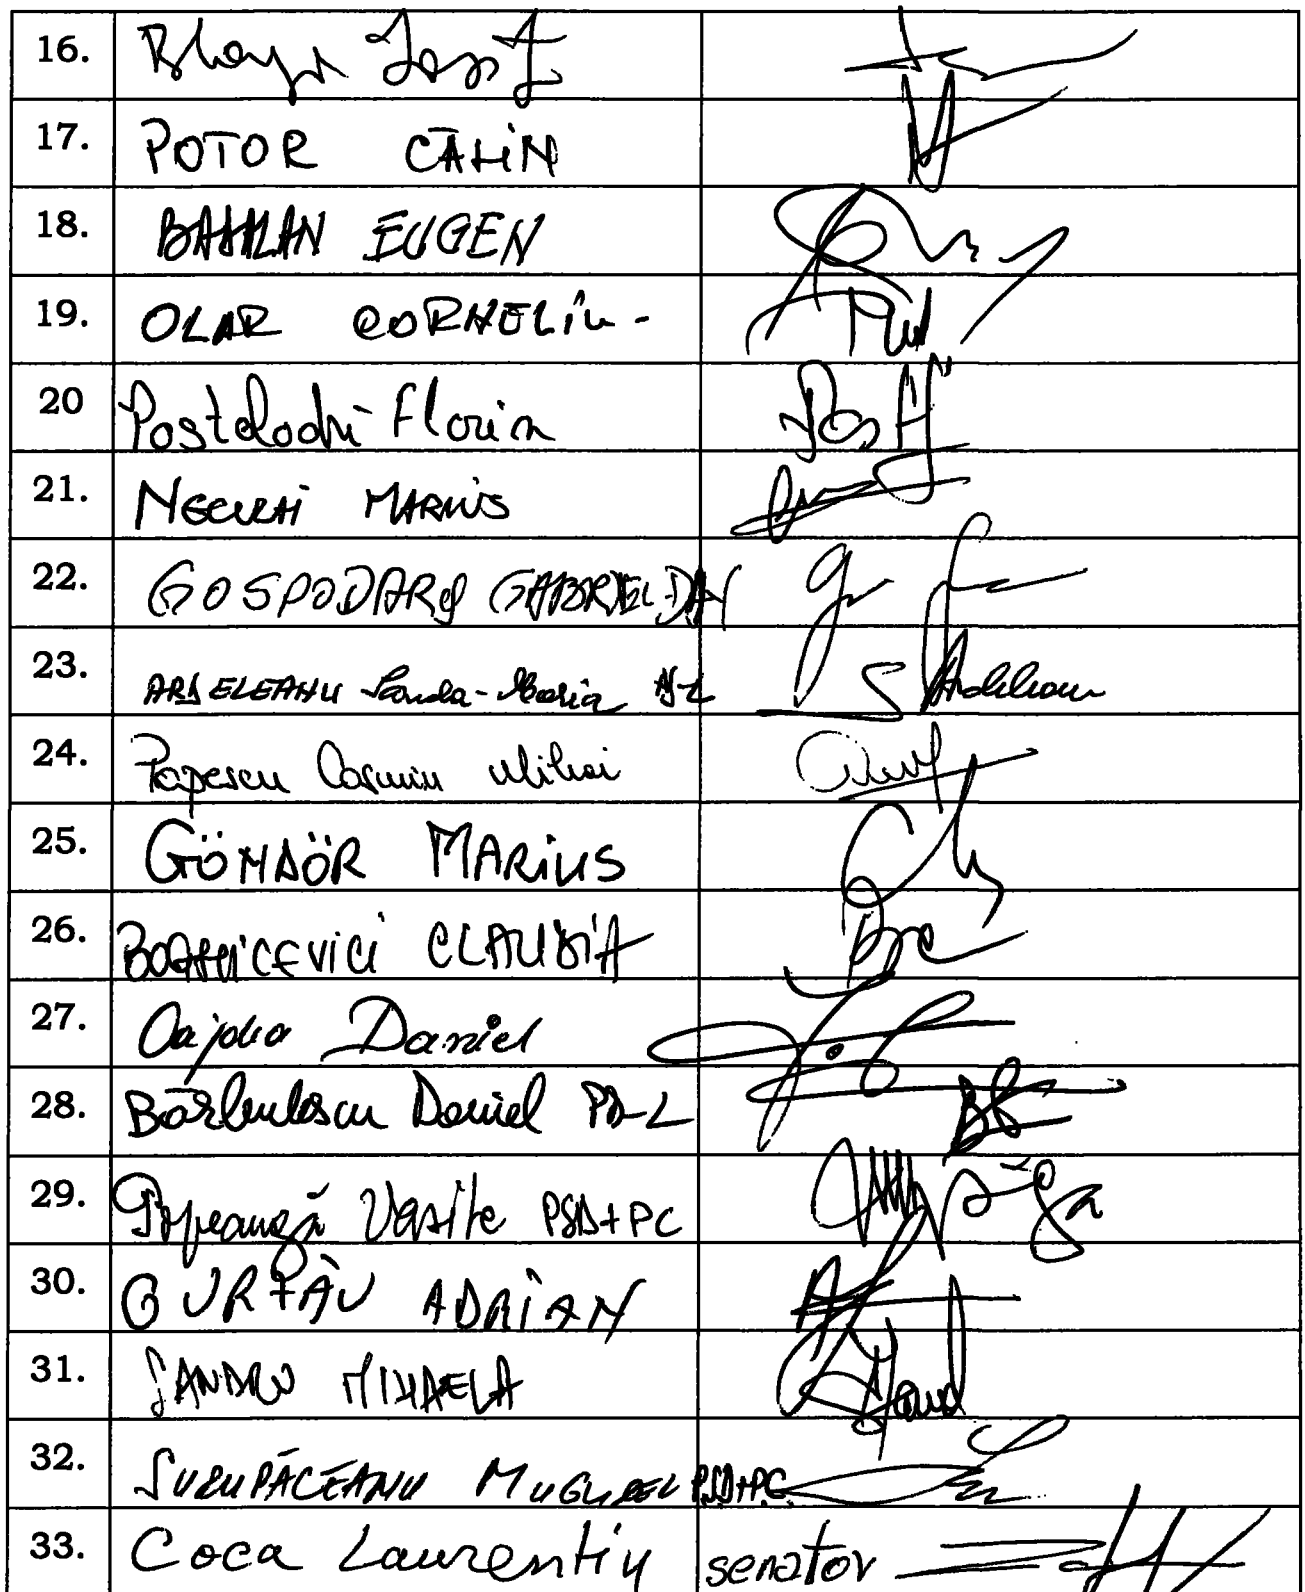 16. Iosif
17. POTOR CĂLIN
18. EUGEN
19. OLAR CORNELIU -
20 Postolachi Florin
21. NECULAI MARIUS
22. GOSPODARU GABRIEL-DAN
23. ARDELEANU Sanda-Maria
24. Popescu Cosmin Mihai
25. GÖNDÖR MARIUS
26. BOGHICEVICI CLAUDIA
27. Oajdea Daniel
28. Bărbulescu Daniel PD-L
29. Popeangă Vasile PSD+PC
30. GURZĂU ADRIAN
31. SANDRU MIHAELA
32. SURUPĂCEANU MUGUREL PSD+PC
33. Coca Laurențiu senator